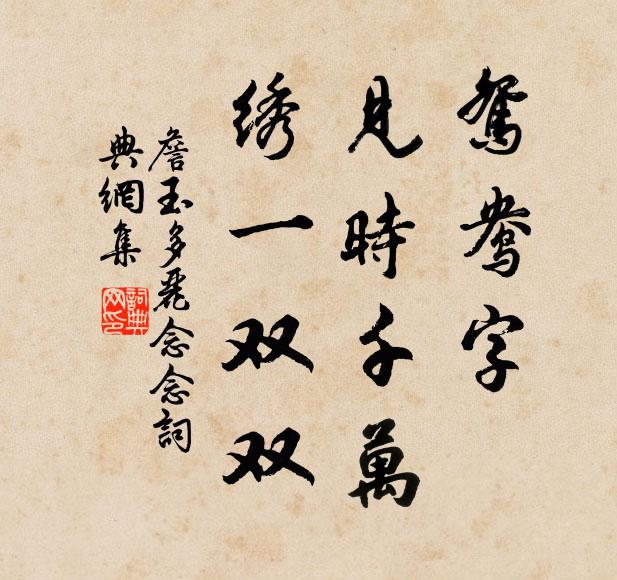 鴛鴦字
見時千萬
绣一双双
詹玉多麗念念詞
典網集
詞典
网印